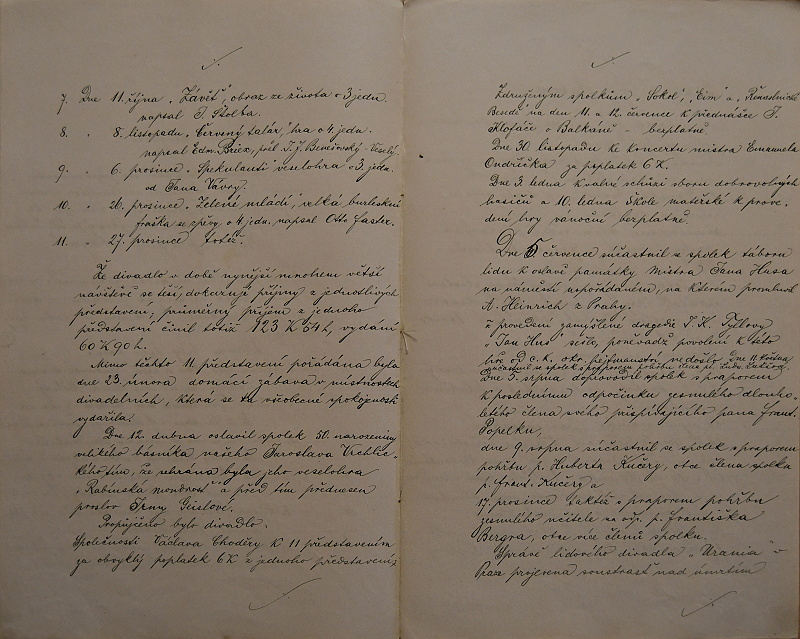 7. Dne 11. října „Závěť", obraz ze života o 3 jedn.
napsal J. Štolba.
8. " 8. listopadu „Červený talár", hra o 4 jedn.
napsal Edm. Briex, přel. J. J. Benešovský-Veselý.
9. " 6. prosince „Spekulanti" veselohra o 3. jedn.
od Jana Vávry.
10. " 26. prosince „Zelené mládí", velká burleskní
fraška se zpěvy o 4 jedn. napsal Otto Faster.
11. " 27. prosince totéž.
Že divadlo v době nynější mnohem větší
návštěvě se těší, dokazují příjmy z jednotlivých
představení; průměrný příjem z jednoho
představení činil totiž 123 K 54 h, vydání
60 K 90 h.
Mimo těchto 11. představení pořádána byla
dne 23. února domácí zábava v místnostech
divadelních, která se ku všeobecné spokojenosti
vydařila.
Dne 12. dubna oslavil spolek 50. narozeniny
velikého básníka našeho Jaroslava Vrchlic-
kého tím, že sehrána byla jeho veselohra
„Rabínská moudrost" a před tím přednesen
proslov Irmy Geislové.
Propůjčeno bylo divadlo:
Společnosti Václava Choděry k 11 představením
za obvyklý poplatek 6 K z jednoho představení,
Združeným spolkům „Sokol", a „Řemeslnická
Beseda" na den 11. a 12. července k přednášce
Klofáče o Balkáně – bezplatně.
Dne 30. listopadu ke koncertu mistra Emanuela
Ondříčka za poplatek 6 K.
Dne 3. ledna k valné schůzi sboru dobrovolných
hasičů a 10. ledna škole mateřské k prove-
dení hry vánoční bezplatně.
Dne 5 července súčastnil se spolek táboru
lidu k oslavě památky Mistra Jana Husa
na náměstí uspořádaném, na kterém promluvil
A. Heinrich z Prahy.
K provedení zamýšlené tragedie J. K. Tyllovy
„Jan Hus" sešlo, poněvadž povolení k této
hře od c. k. okr. hejtmanství nedošlo. Dne 11. května
súčastnil se spolek s praporem pohřbu člena p.
Dne 3. srpna doprovodil spolek s praporem
k poslednímu odpočinku zesnulého dlouho-
letého člena svého přispívajícího pana Frant.
Popelku,
dne 9. srpna súčastnil se spolek s praporem
pohřbu p. Huberta Kučery, otce člena spolku
p. Frant. Kučery a
17. prosince taktéž s praporem pohřbu
zesnulého učitele na odp. p. Františka
Bergra, otce více členů spolku.
Správě lidového divadla „Urania" v
Praze projevena soustrast nad úmrtím